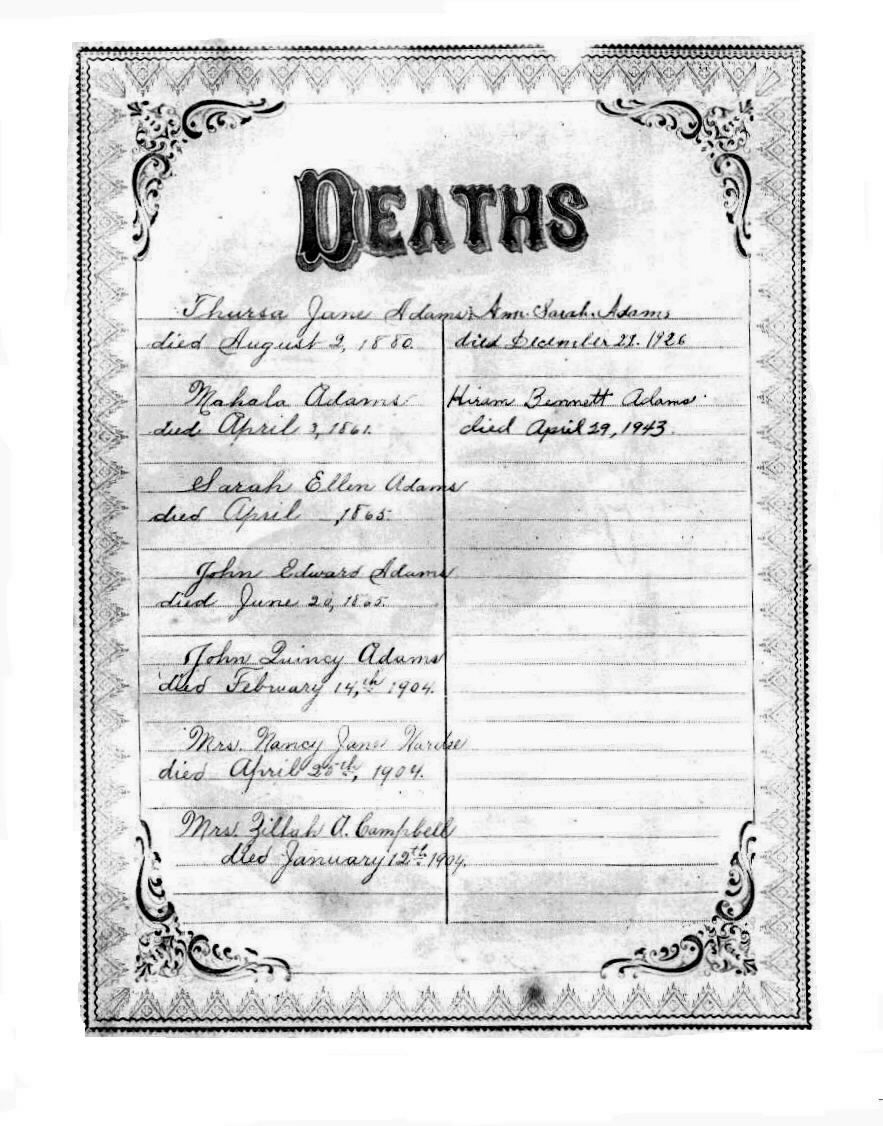 DEATHS
Thursa Jane Adams
died August 2, 1880.
Mahala Adams
died April 3, 1861.
Sarah Ellen Adams
died April , 1865.
John Edward Adams
died June 20, 1865.
John Quincy Adams
died February 14,th 1904.
Mrs. Nancy Jane
died April 25th, 1904.
Mrs. Zillah A. Campbell
died January 12th 1904.
Ann Sarah Adams
died December 28. 1926
Hiram Bennett Adams
died April 29, 1943.